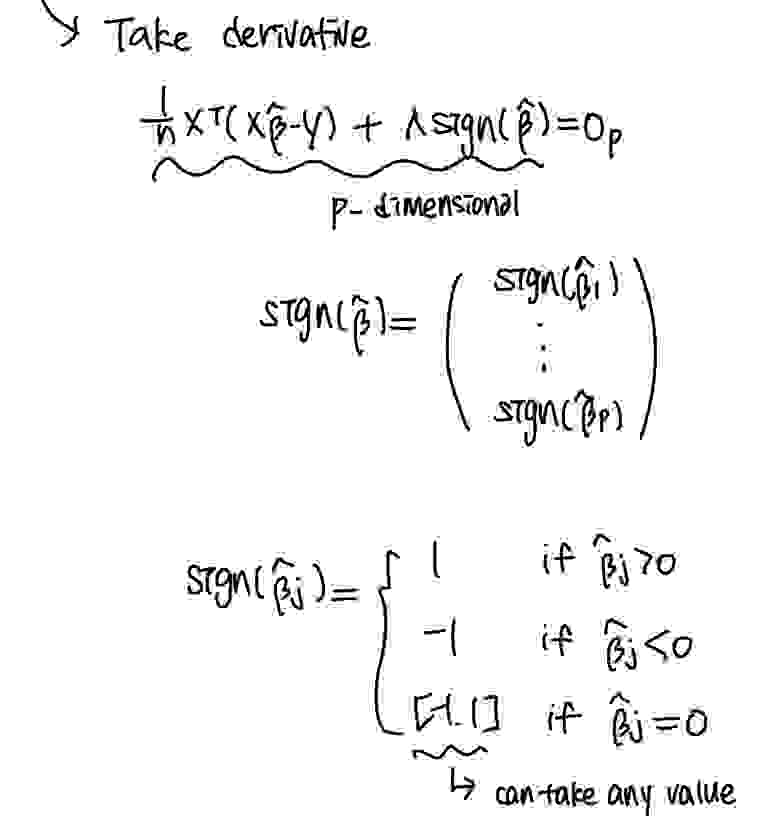 ↳ Take derivative
1/n X^T(Xβ̂-Y) + λ sign(β̂) = 0_p
p-dimensional
sign(β̂) = ( sign(β̂_1)
⋮
sign(β̂_p) )
sign(β̂_j) = { 1 if β̂_j > 0
-1 if β̂_j < 0
[-1, 1] if β̂_j = 0
↳ can take any value